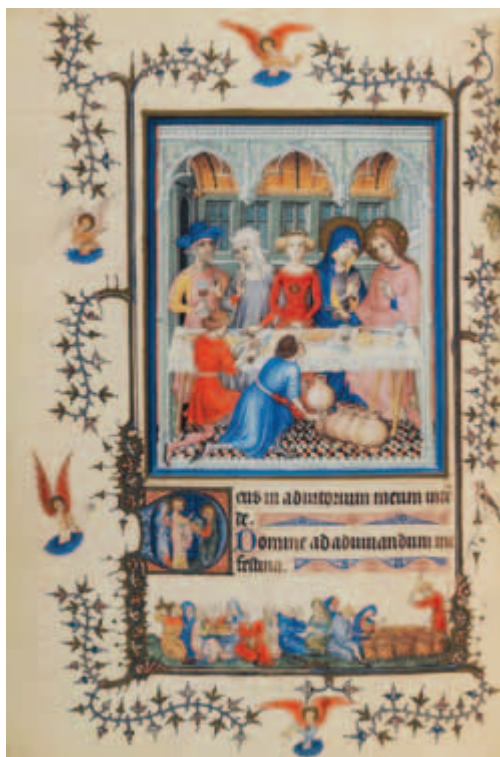 Deus in adiutorium meum intē
de.
Domine ad adiuuandum me
festina.